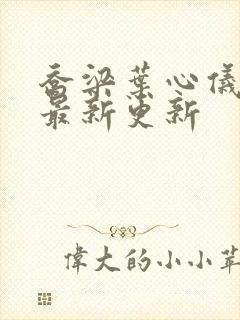 喬梁葉心儀
最新更新
偉大的小小苹